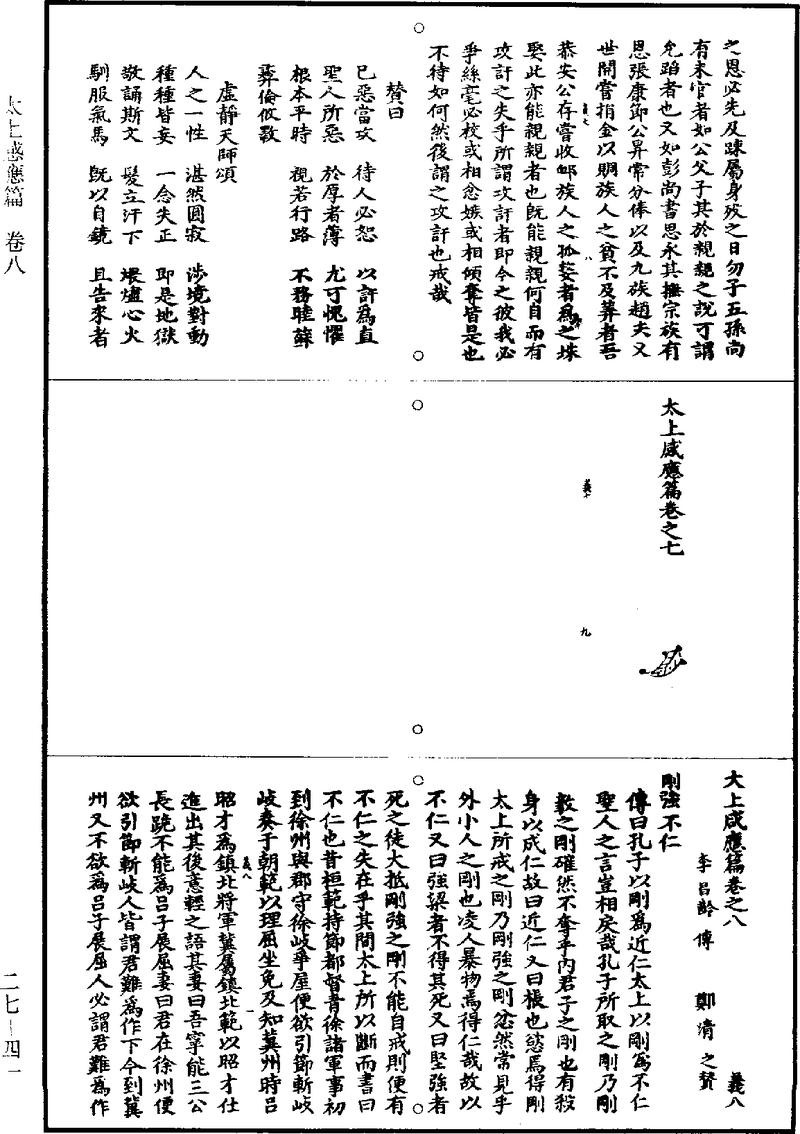 之恩必先及踈屬身歿之日勿子五孫尚
有未官者如公父子其於親親之說可謂
允蹈者也又如彭尚書思永其撫宗族有
恩張康節公昇常分俸以及九族趙夫又
世開嘗捐金以賙族人之貧不及葬者吾
恭安公存嘗收邺族人之孤嫠者為之
娶此亦能親親者也旣能親親何自而有
攻訐之失乎所謂攻訐者即今之彼我必
爭絲毫必校或相忿嫉或相傾奪皆是也
不待如何然後謂之攻訐也戒哉
贊曰
已惡當攻 待人必恕 以訐為直
聖人所惡 於厚者薄 尤可愧懼
根本平時 視若行路 不務睦蘇
彛倫攸斁
虛靜天師頌
人之一性 湛然圓寂 涉境對動
種種皆妄 一念失正 即是地獄
敬誦斯文 髮立汗下 煨燼心火
馴服氣馬 旣以自鏡 且告來者
太上感應篇卷之七
義七
九
太上感應篇卷之八 義八
李昌齡傳 鄭清之贊
剛強不仁
傳曰孔子以剛為近仁太上以剛為不仁
聖人之言豈相戾哉孔子所取之剛乃剛
毅之剛確然不奪乎內君子之剛也有殺
身以成仁故曰近仁又曰棖也慾焉得剛
太上所戒之剛乃剛強之剛忿然常見乎
外小人之剛也凌人暴物焉得仁哉故以
不仁又曰強梁者不得其死又曰堅強者
死之徒大抵剛強之剛不能自戒則便有
不仁之失在乎其間太上所以斷而書曰
不仁也昔桓範持節都督青徐諸軍事初
到徐州與郡守徐岐爭屋便欲引節斬岐
岐奏于朝範以理屈坐免及知冀州時呂
昭才為鎮北將軍冀屬鎮北範以昭才仕
義八
進出其後意輕之語其妻曰吾寧能三公
長跪不能為呂子展屈妻曰君在徐州便
欲引節斬岐人皆謂君難為作下今到冀
州又不欲為呂子展屈人必謂君難為作
太上感應篇 卷八
二七-四一